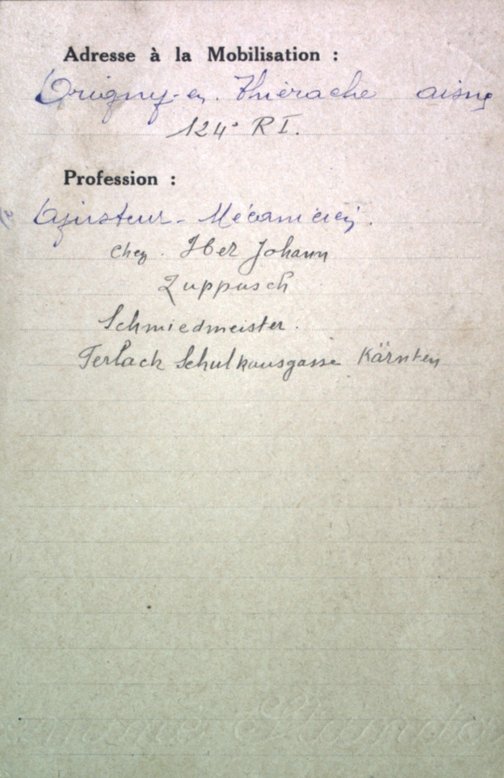 Adresse à la Mobilisation :
Origny-en-Thiérache aisne
124e R I.
Profession :
Ajusteur - Mécanicien.
chez Johann
Zuppusch
Schmiedmeister.
Ferlach Schulhausgasse Kärnten